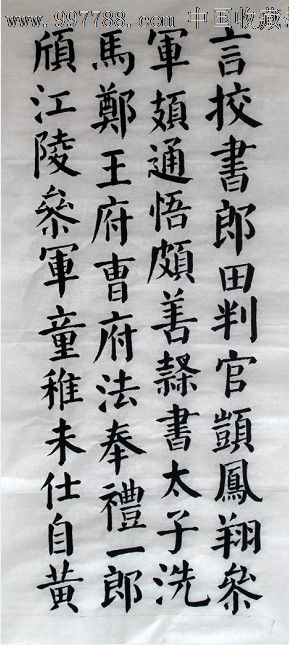 www.997788.com 中国收藏
言校書郎田判官顗鳳翔叅
軍頗通悟頗善隸書太子洗
馬鄭王府曹府法奉禮一郎
頎江陵叅軍童稚未仕自黃